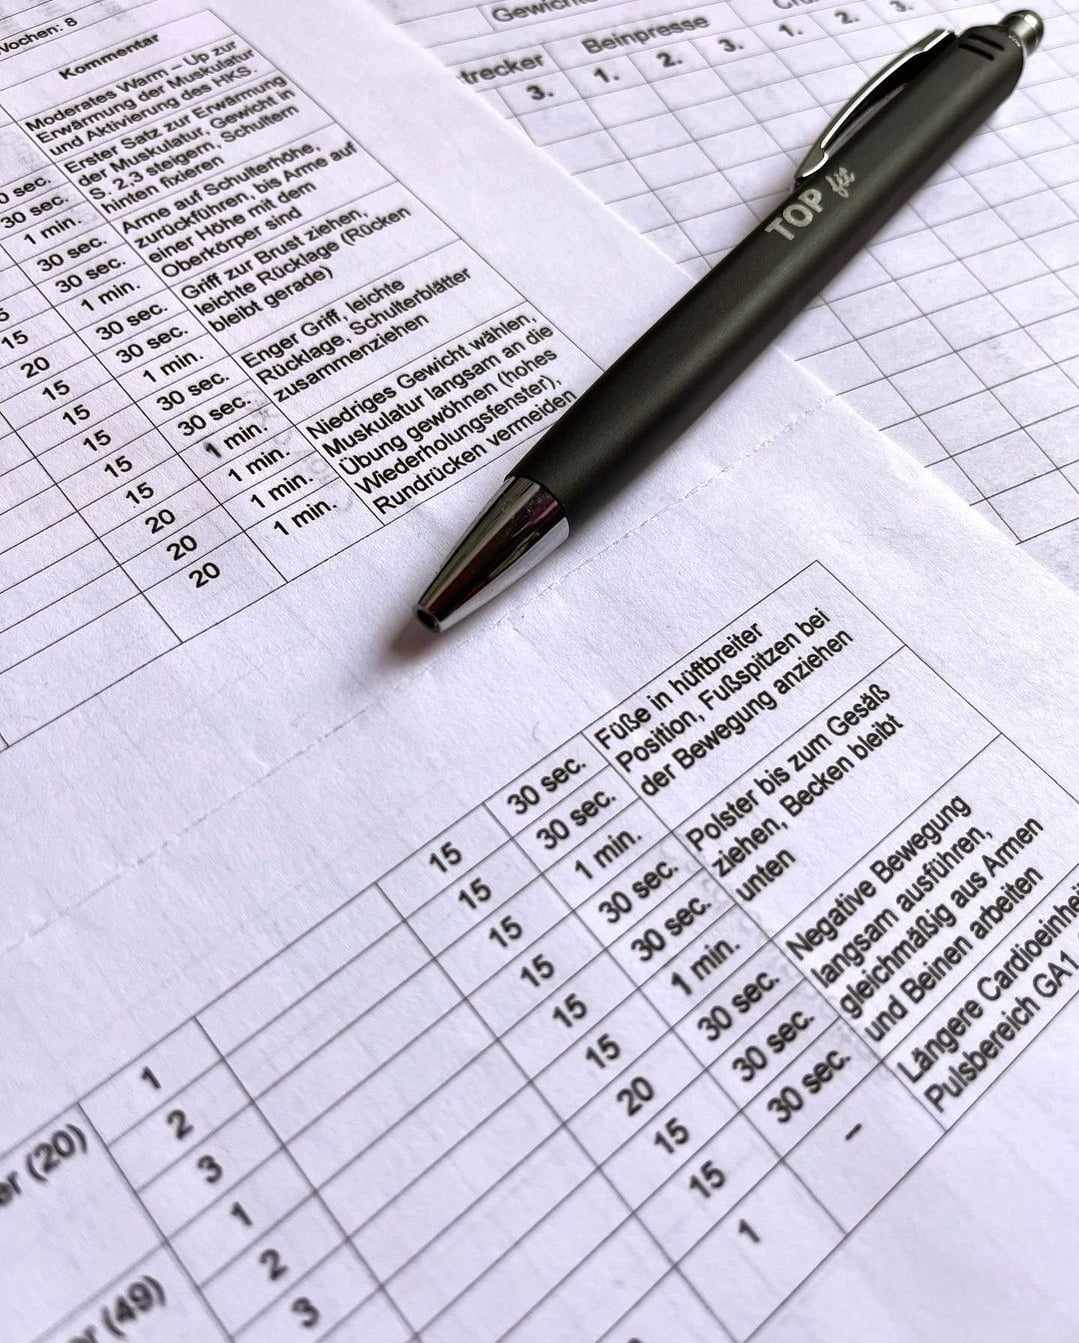 Wochen: 8
Kommentar
Moderates Warm – Up zur
Erwärmung der Muskulatur
und Aktivierung des HKS.
Erster Satz zur Erwärmung
der Muskulatur, Gewicht in
S. 2,3 steigern, Schultern
hinten fixieren
Arme auf Schulterhöhe,
zurückführen, bis Arme auf
einer Höhe mit dem
Oberkörper sind
Griff zur Brust ziehen,
leichte Rücklage (Rücken
bleibt gerade)
Enger Griff, leichte
Rücklage, Schulterblätter
zusammenziehen
Niedriges Gewicht wählen,
Muskulatur langsam an die
Übung gewöhnen (hohes
Wiederholungsfenster),
Rundrücken vermeiden
sec.
30 sec.
1 min.
30 sec.
30 sec.
1 min.
15 30 sec.
20 30 sec.
15 1 min.
15 30 sec.
15 30 sec.
15 1 min.
15 1 min.
20 1 min.
20 1 min.
20
Beinpresse
3. 1. 2. 3. 1. 2. 3.
TOP fit
Füße in hüftbreiter
Position, Fußspitzen bei
der Bewegung anziehen
Polster bis zum Gesäß
ziehen, Becken bleibt
unten
Negative Bewegung
langsam ausführen,
gleichmäßig aus Armen
und Beinen arbeiten
Längere Cardioeinheit
Pulsbereich GA1
1 15 30 sec.
2 15 30 sec.
3 15 1 min.
1 15 30 sec.
2 15 30 sec.
3 15 1 min.
20 30 sec.
15 30 sec.
15 30 sec.
1 –
er (20)
er (49)